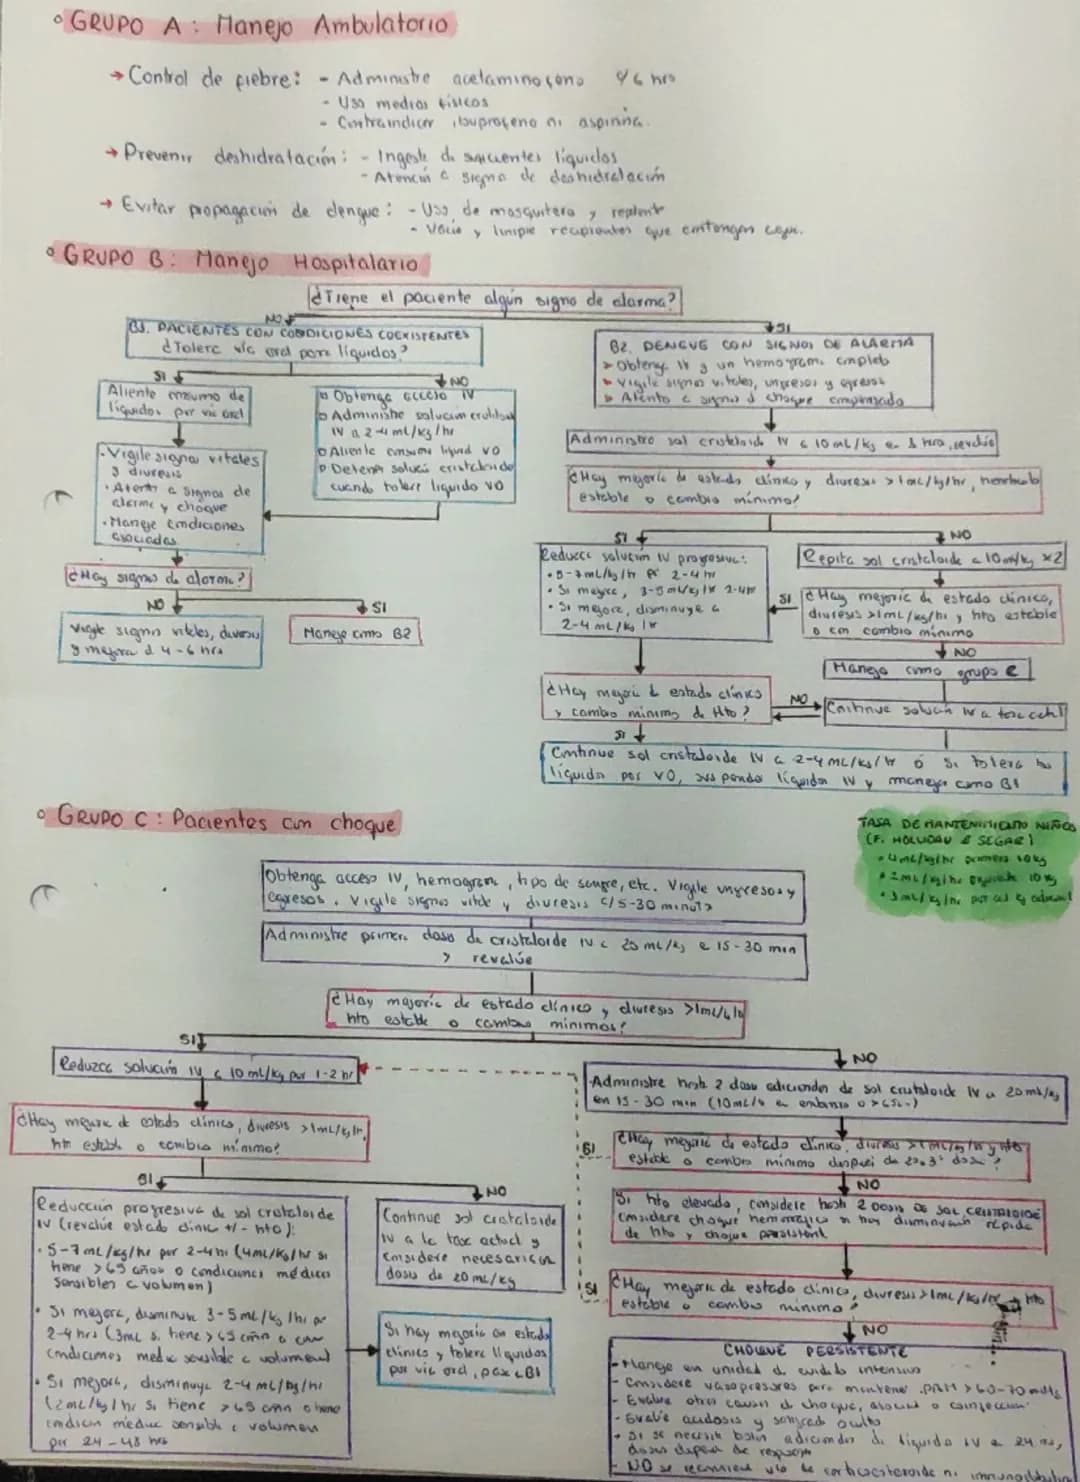 GRUPO A: Manejo Ambulatorio
→ Control de fiebre: - Administre acetaminofeno c/6 hrs
- Uso medios físicos
- Contraindicar ibuprofeno ni aspirina.
→ Prevenir deshidratación: - Ingesta de suficientes líquidos
- Atención a signos de deshidratación
→ Evitar propagación de dengue: - Uso de mosquitero y
- Vacie y limpie recipientes que contengan agua.
GRUPO B: Manejo Hospitalario
¿Tiene el paciente algún signo de alarma?
NO
B1. PACIENTES CON CONDICIONES COEXISTENTES
¿Tolera vía oral para líquidos?
SI
Aliente consumo de
líquidos por vía oral
NO
Obtenga acceso IV
Administre solución cristaloide
IV a 2-4 mL/kg/hr
Aliente consumo líquid VO
Detener soluci cristaloide
cuando tolere líquido VO
- Vigile signos vitales
y diuresis
• Atento a signos de
alarma y choque
• Maneje condiciones
asociadas
¿Hay signos de alarma?
NO
Vigile signos vitales, diuresis
y mejora d 4-6 hrs
SI
Maneje como B2
SI
B2. DENGUE CON SIGNOS DE ALARMA
Obtenga IV y un hemograma completo
Vigile signos vitales, ingresos y egresos
Atento a signos d choque
Administre sol cristaloide IV a 10 mL/kg en 1 hora, revalúe
¿Hay mejoría de estado clínico y diuresis >1mL/kg/hr, hematocrito
estable o cambio mínimo?
SI
Reduzca solución IV progresiva:
• 5-7mL/kg/hr por 2-4 hr
• Si mejora, 3-5mL/kg/hr 2-4hr
• Si mejora, disminuye a
2-4 mL/kg/hr
NO
Repita sol cristaloide a 10ml/kg x2
SI
¿Hay mejoría de estado clínico,
diuresis >1mL/kg/hr y hto estable
o con cambio mínimo
NO
Maneja como grupo C
¿Hay mejoría d estado clínico
y cambio mínimo de Hto?
NO
Continue solución IV a tasa actual
SI
Continue sol cristaloide IV a 2-4 mL/kg/hr ó si tolera los
líquidos por VO, suspenda líquidos IV y maneja como B1
GRUPO C: Pacientes con choque
TASA DE MANTENIMIENTO NIÑOS
(F. HOLLIDAY & SEGAR)
• 4mL/kg/hr primeros 10kg
• 2mL/kg/hr siguiente 10 kg
• 1mL/kg/hr por cad kg adicional
Obtenga acceso IV, hemograma, tipo de sangre, etc. Vigile ingresos y
egresos. Vigile signos vitale y diuresis c/5-30 minutos
Administre primera dosis de cristaloide IV a 20 mL/kg e 15-30 min
y revalúe
¿Hay mejoría de estado clínico y diuresis >1mL/kg/h
hto estable o cambios mínimos?
SI
Reduzca solución IV a 10 mL/kg por 1-2 hr
¿Hay mejora de estado clínico, diuresis >1mL/kg/hr,
hto estable o cambio mínimo?
SI
Reducción progresiva de sol cristaloide
IV (revalúe estado clínic +/- hto):
• 5-7 mL/kg/hr por 2-4 hr (4mL/Kg/hr si
tiene >65 años o condiciones médicas
sensibles a volumen)
• Si mejora, disminuir 3-5mL/kg/hr por
2-4 hrs (3mL si tiene >65 años o con
condiciones médic sensible a volumen)
• Si mejora, disminuya 2-4 mL/kg/hr
(2mL/kg/hr si tiene >65 años o tiene
condición médica sensible a volumen
por 24-48 hrs
NO
Continue sol cristaloide
IV a la tasa actual y
considere
dosis de 20 mL/kg
Si hay mejoría en estado
clínico y tolera líquidos
por vía oral, pasa a B1
NO
Administre hasta 2 dosis adicionales de sol cristaloide IV a 20ml/kg
en 15-30 min
SI
¿Hay mejoría de estado clínico, diuresis >1mL/kg/hr y hto
estable o cambio mínimo después de 2ª o 3ª dosis?
NO
Si hto elevado, considere hasta 2 dosis de SOL CRISTALOIDE
Considere choque hemorrágico si hay disminución rápida
de hto y choque persistent
SI
¿Hay mejoría de estado clínico, diuresis>1mL/kg/hr hto
estable o cambio mínimo?
NO
CHOQUE PERSISTENTE
- Maneje en unidad d cuidado intensivo
- Considere vasopresores para mantener PAM >60-70 mmHg
- Evalúe otras causas d choque, o coinfección
- Evalúe acidosis y sangrado oculto
- Si se necesita bolus adicionales de líquido IV a 24 hrs,
dosis depende de respuesta
- NO se recomiend uso de corticoesteroide ni